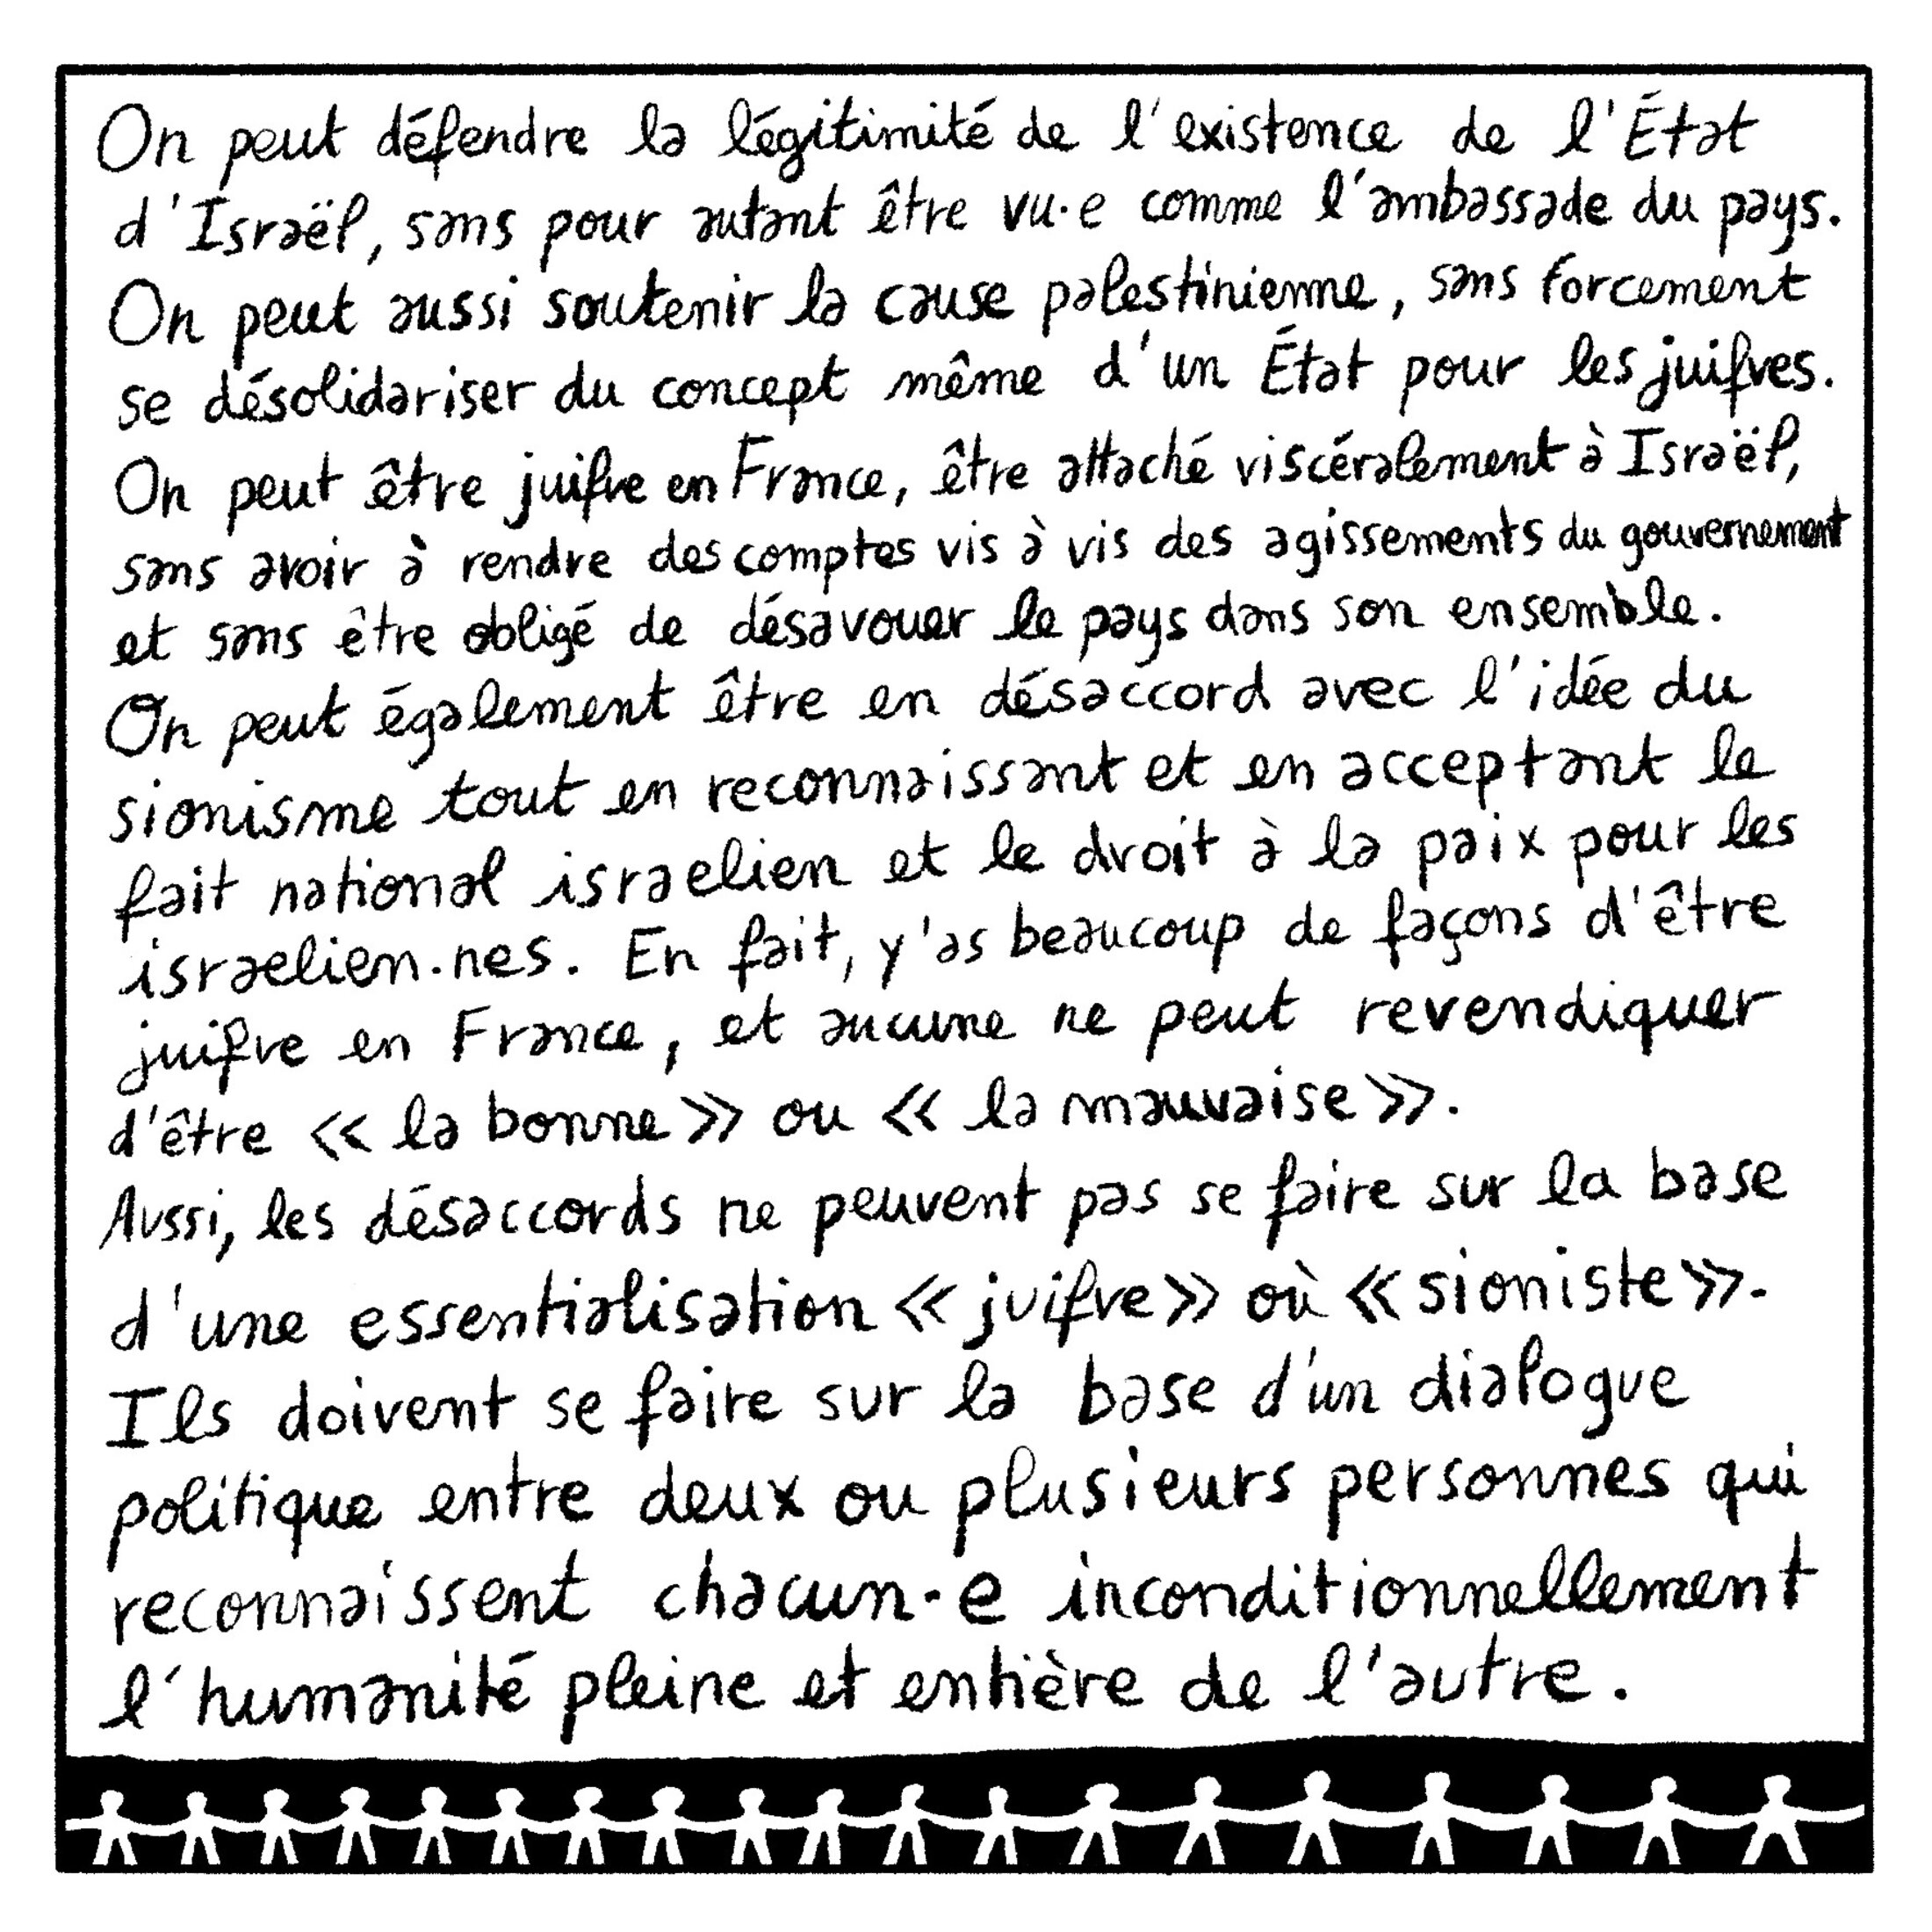 On peut défendre la légitimité de l'existence de l'État
d'Israël, sans pour autant être vu·e comme l'ambassade du pays.
On peut aussi soutenir la cause palestinienne, sans forcement
se désolidariser du concept même d'un État pour les juifves.
On peut être juifve en France, être attaché viscéralement à Israël,
sans avoir à rendre des comptes vis à vis des agissements du gouvernement
et sans être obligé de désavouer le pays dans son ensemble.
On peut également être en désaccord avec l'idée du
sionisme tout en reconnaissant et en acceptant le
fait national israelien et le droit à la paix pour les
israelien·nes. En fait, y'as beaucoup de façons d'être
juifve en France, et aucune ne peut revendiquer
d'être « la bonne » ou « la mauvaise ».
Aussi, les désaccords ne peuvent pas se faire sur la base
d'une essentialisation « juifve » où « sioniste ».
Ils doivent se faire sur la base d'un dialogue
politique entre deux ou plusieurs personnes qui
reconnaissent chacun·e inconditionnellement
l'humanité pleine et entière de l'autre.